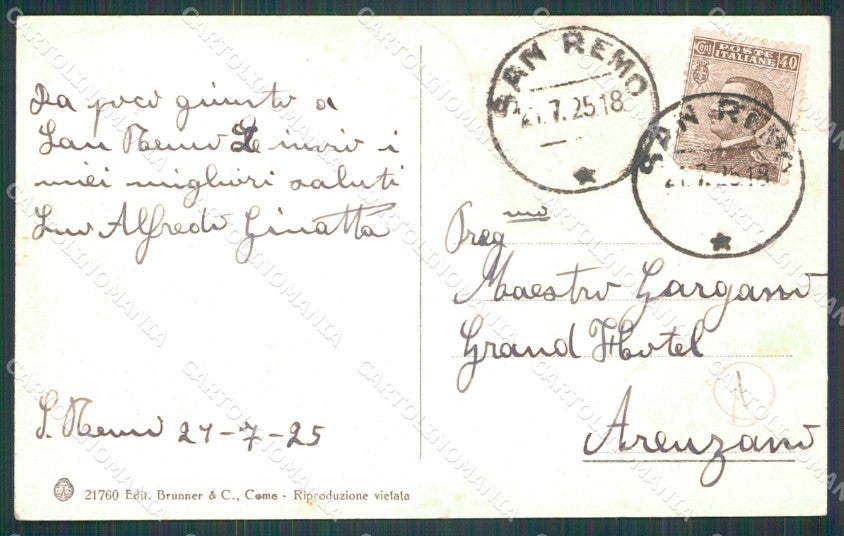 Da poco giunto a
San Remo Le invio i
miei migliori saluti
Suo Alfredo Ginatta
S. Remo 21-7-25
21760 Edit. Brunner & C., Como - Riproduzione vietata
SAN REMO
21.7.25.18
Cent POSTE ITALIANE 40
SAN REMO
21.7.25.18
Preg mo
Maestro Gargano
Grand Hotel
A
Arenzano
CARTOLINOMANIA